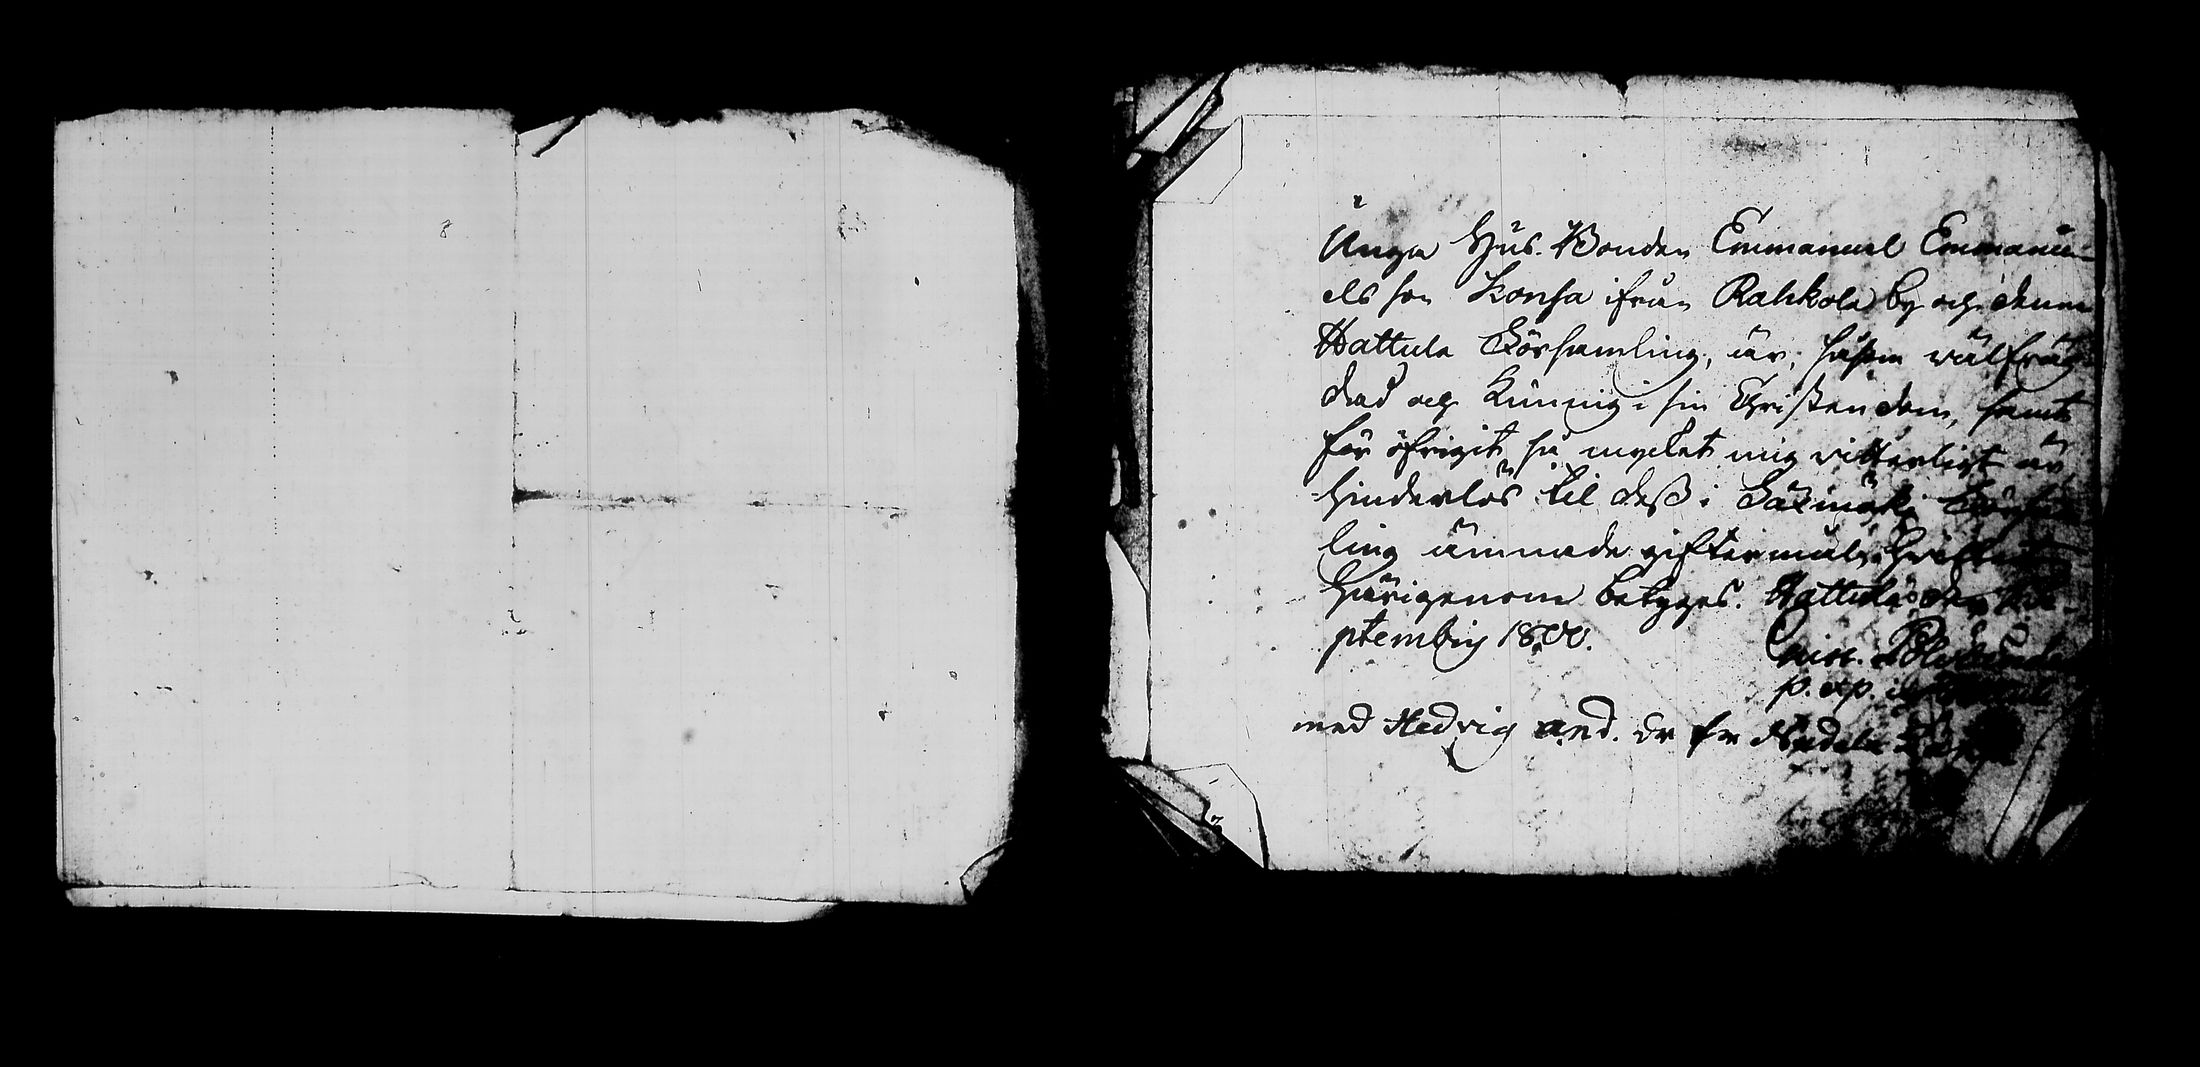 Unga Hus-Bonden Emmanuel Emmanu-
els son Konsa ifrån Rahkola by och denna
Hattula Församling, är, såsom wälfräg-
dad och kunnig i sin Christendom, samt
för öfrigit så mycket mig vitterligt är
hinderlös til dess i Församb-
ling ämnade giftermål,
härigenom betygas. Hattula den Se-
ptembris 1800.
p. et p. i
med Hedvig And. dr fr